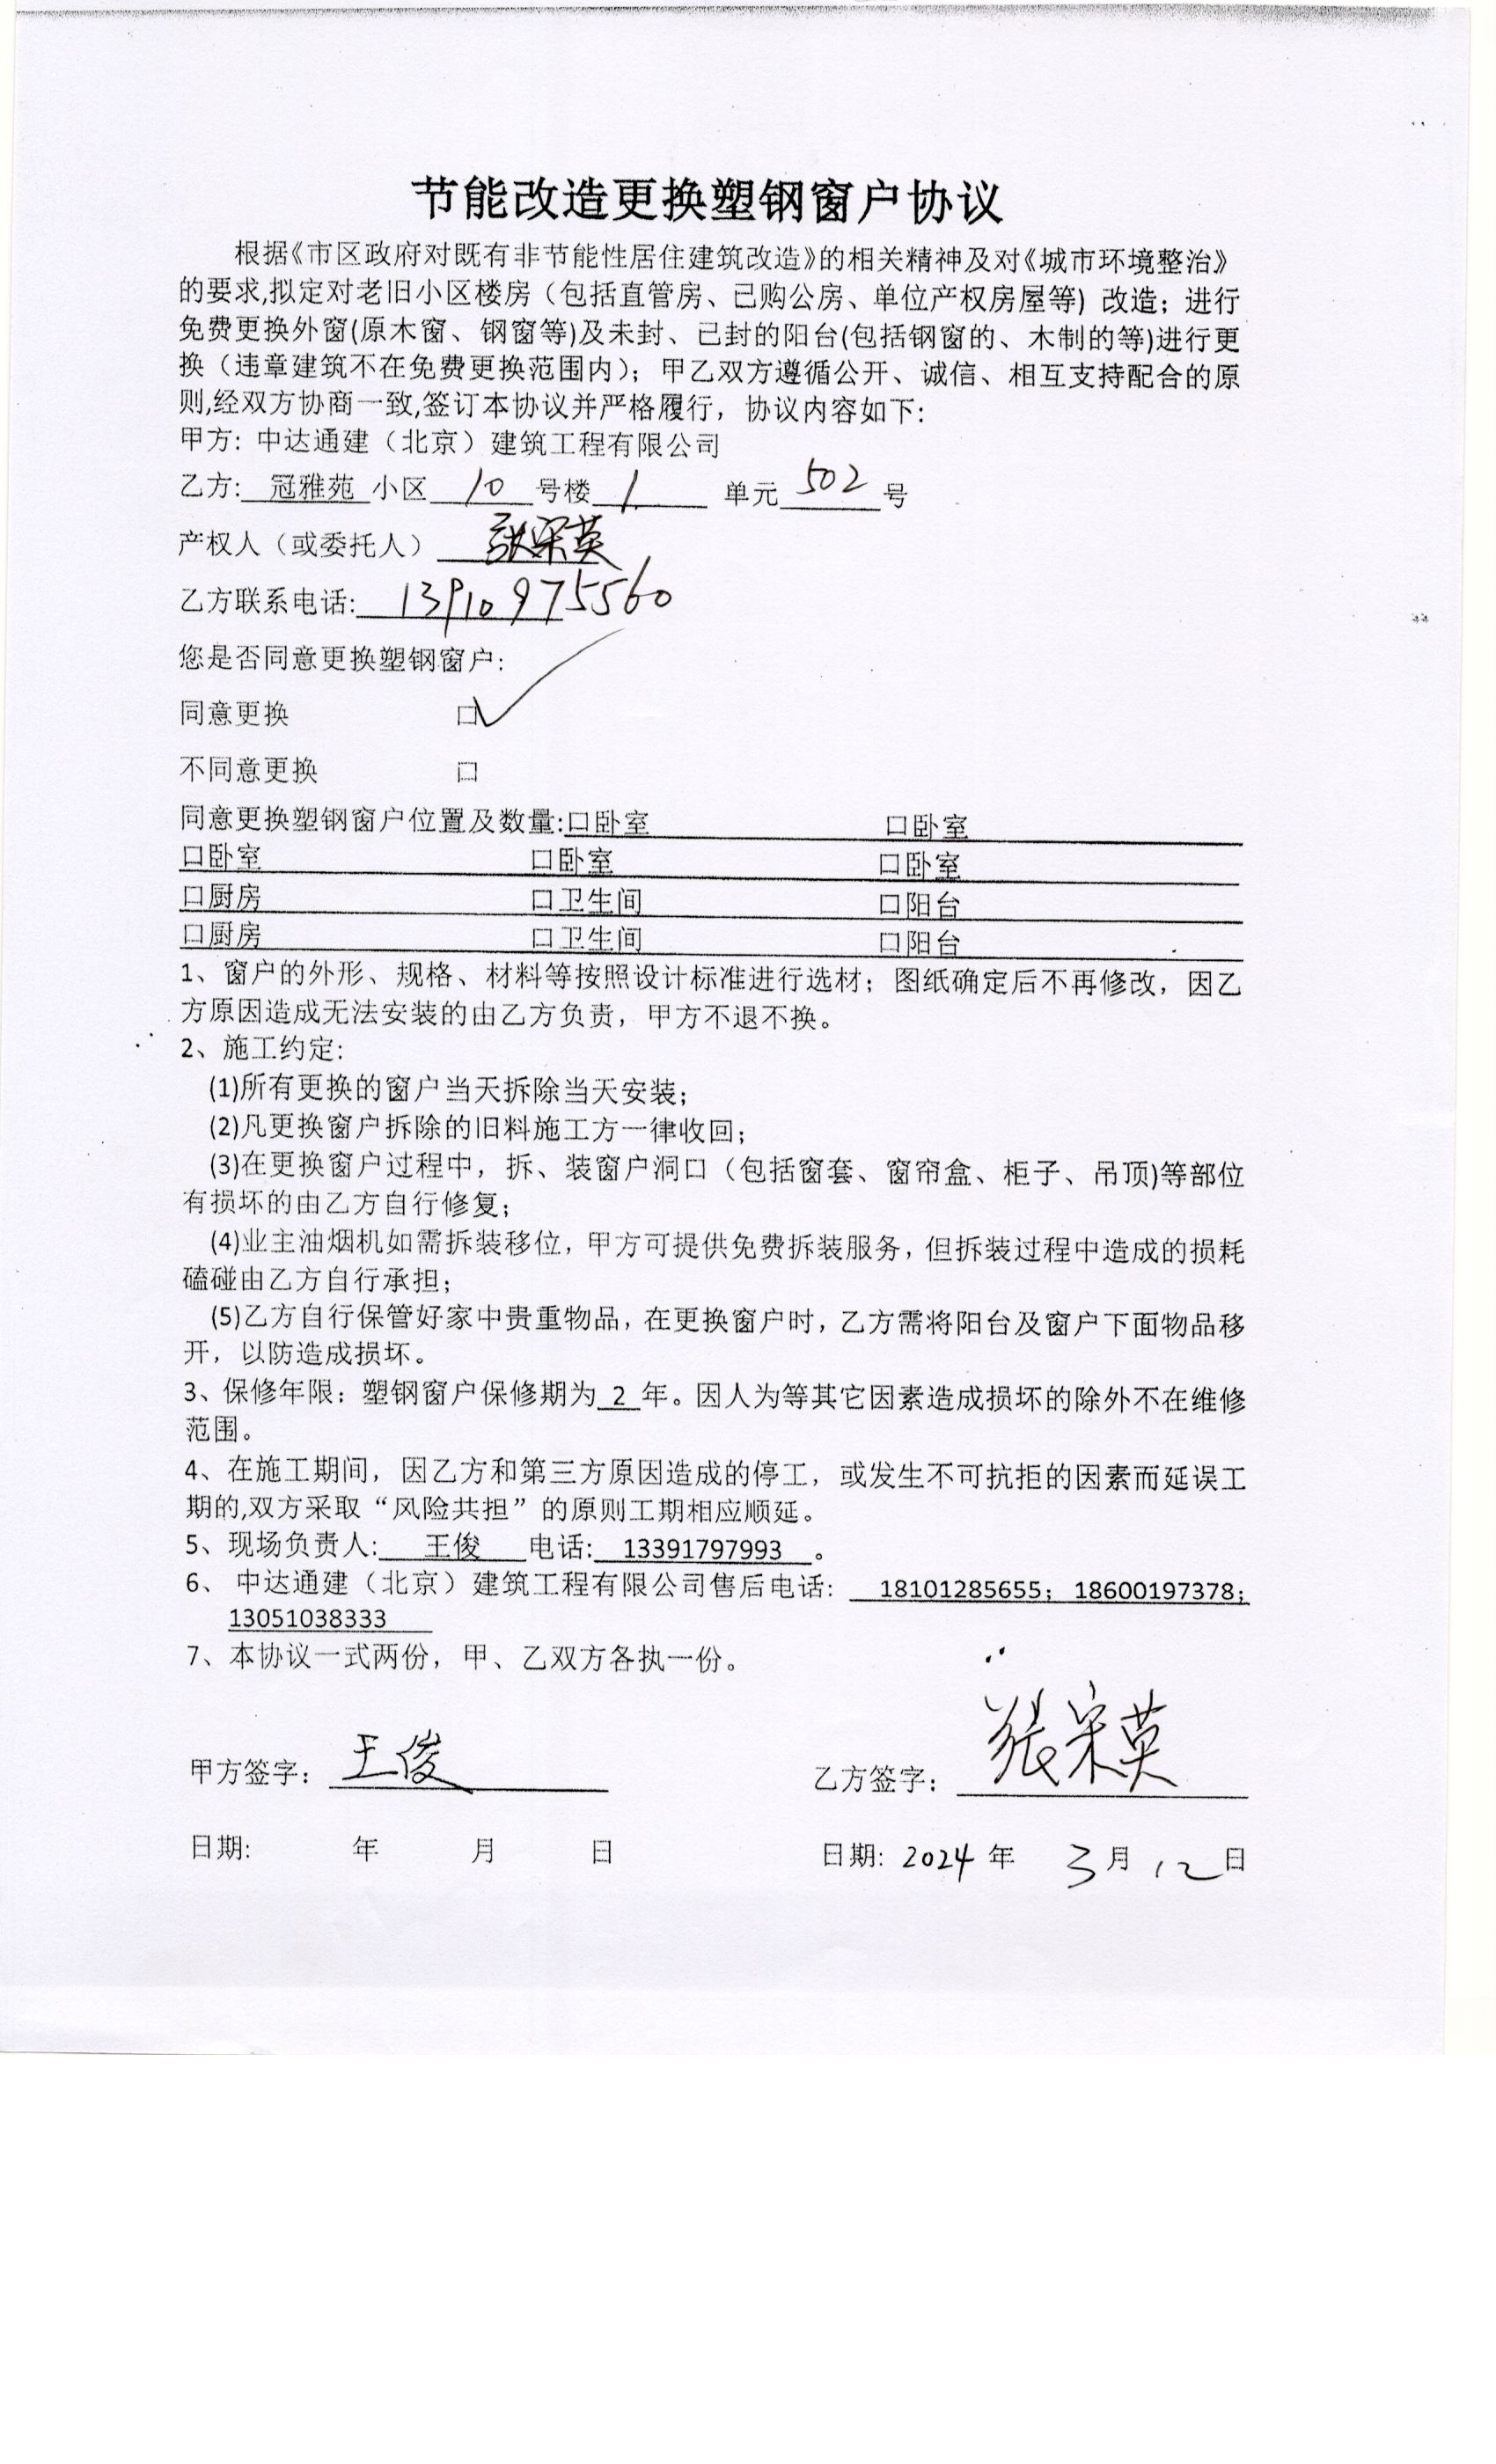 节能改造更换塑钢窗户协议
根据《市区政府对既有非节能性居住建筑改造》的相关精神及对《城市环境整治》
的要求,拟定对老旧小区楼房（包括直管房、已购公房、单位产权房屋等）改造；进行
免费更换外窗(原木窗、钢窗等)及未封、已封的阳台(包括钢窗的、木制的等)进行更
换（违章建筑不在免费更换范围内）；甲乙双方遵循公开、诚信、相互支持配合的原
则,经双方协商一致,签订本协议并严格履行，协议内容如下:
甲方: 中达通建（北京）建筑工程有限公司
乙方: 冠雅苑 小区 10 号楼 1 单元 502 号
产权人（或委托人） 张荣英
乙方联系电话: 13910975560
您是否同意更换塑钢窗户:
同意更换 口✓
不同意更换 口
同意更换塑钢窗户位置及数量:口卧室 口卧室
口卧室 口卧室 口卧室
口厨房 口卫生间 口阳台
口厨房 口卫生间 口阳台
1、窗户的外形、规格、材料等按照设计标准进行选材；图纸确定后不再修改，因乙
方原因造成无法安装的由乙方负责，甲方不退不换。
2、施工约定:
(1)所有更换的窗户当天拆除当天安装；
(2)凡更换窗户拆除的旧料施工方一律收回；
(3)在更换窗户过程中，拆、装窗户洞口（包括窗套、窗帘盒、柜子、吊顶)等部位
有损坏的由乙方自行修复；
(4)业主油烟机如需拆装移位，甲方可提供免费拆装服务，但拆装过程中造成的损耗
磕碰由乙方自行承担；
(5)乙方自行保管好家中贵重物品，在更换窗户时，乙方需将阳台及窗户下面物品移
开，以防造成损坏。
3、保修年限：塑钢窗户保修期为 2 年。因人为等其它因素造成损坏的除外不在维修
范围。
4、在施工期间，因乙方和第三方原因造成的停工，或发生不可抗拒的因素而延误工
期的,双方采取“风险共担”的原则工期相应顺延。
5、现场负责人: 王俊 电话: 13391797993 。
6、 中达通建（北京）建筑工程有限公司售后电话: 18101285655；18600197378；
13051038333
7、本协议一式两份，甲、乙双方各执一份。
甲方签字： 王俊 乙方签字： 张荣英
日期: 年 月 日 日期: 2024 年 3 月 12 日